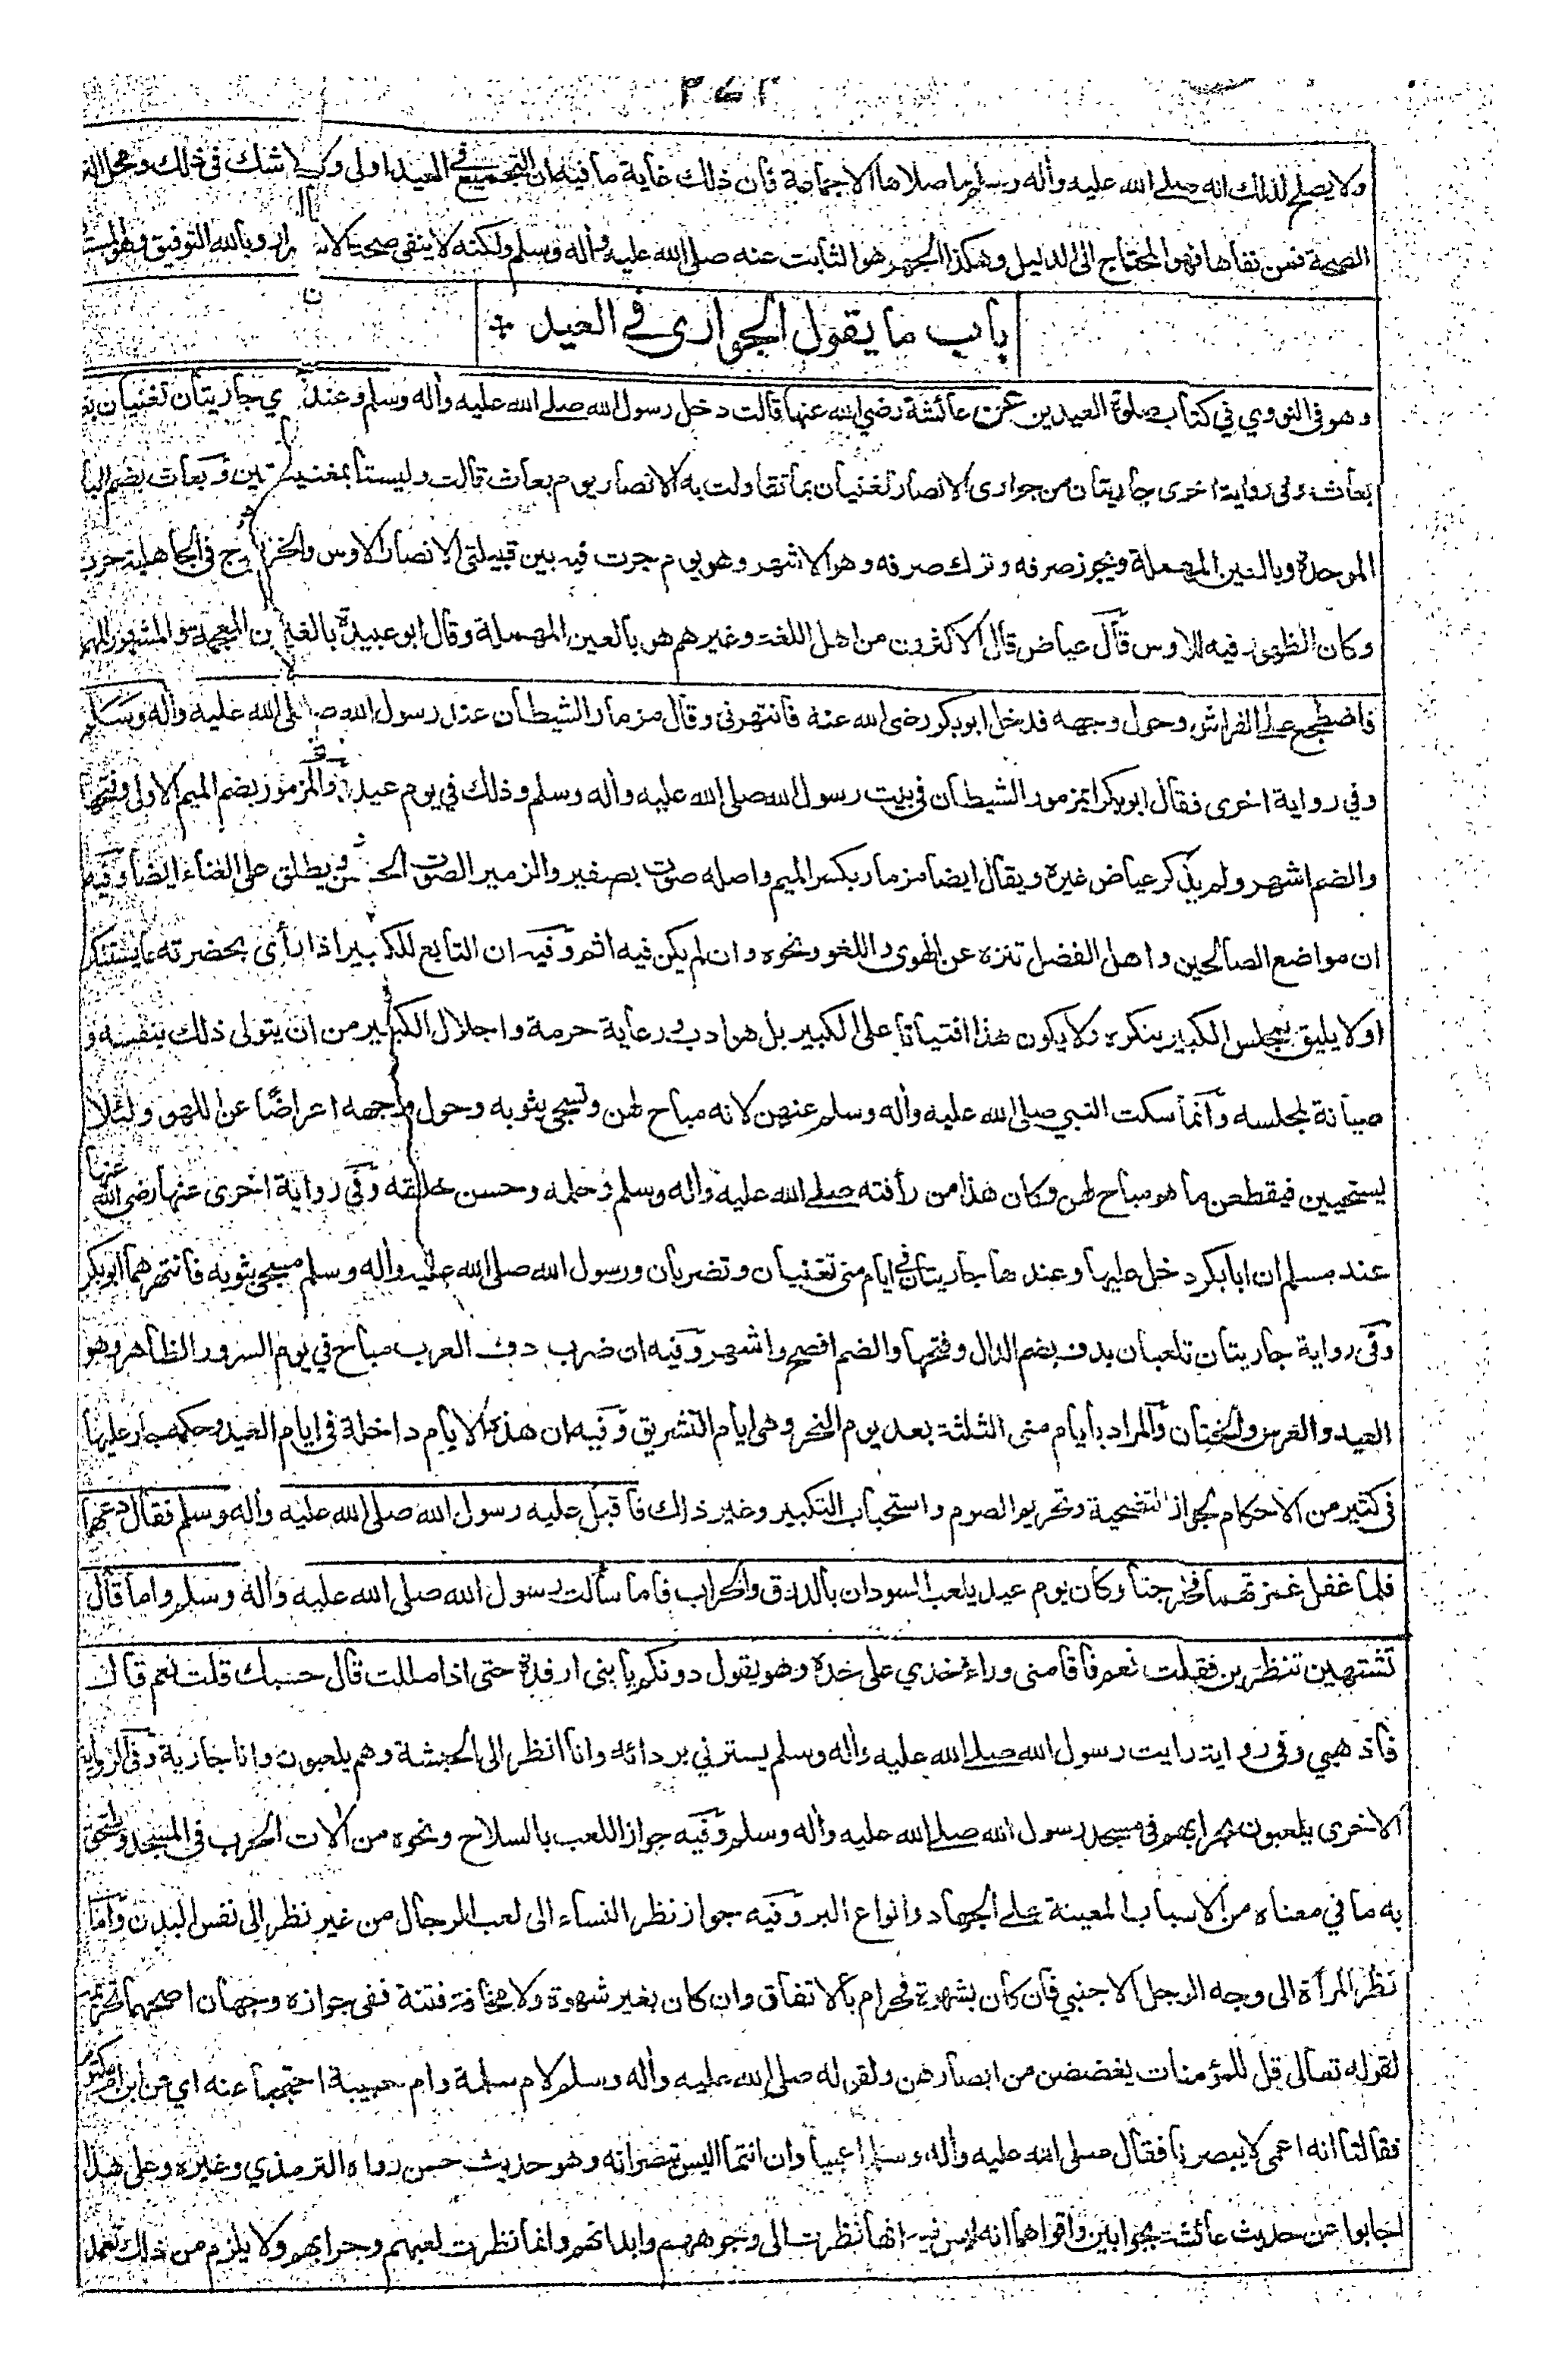 ولا يصلح لذلك انه صلى الله عليه وأله وسلم ما صلاها الا جماعة فأن ذلك غاية ما فيه ان التجميع في العيد اولى ولا شك في ذلك ومحل
الصحيحة فمن نفاها فهو المحتاج الى الدليل وهكذا الجهر هو الثابت عنه صلى الله عليه وأله وسلم ولكنه لا ينفي صحة الاسرار وبالله التوفيق وهو
باب ما يقول الجواري في العيد
وهو في النووي في كتاب صلوة العيدين عن عائشة رضي الله عنها قالت دخل رسول الله صلى الله عليه وأله وسلم وعندي جاريتان تغنيان
بعاث وفي رواية اخرى جاريتان من جواري الانصار تغنيان بما تقاولت به الانصار يوم بعاث قالت وليستا بمغنيتين وبعاث بضم البا
الموحدة وبالعين المهملة ويجوز صرفه وترك صرفه وهو الاشهر وهو يوم جرت فيه بين قبيلتي الانصار الاوس والخزرج في الجاهلية حرب
وكان الظهور فيه للاوس قال عياض قال الاكثرون من اهل اللغة وغيرهم هو بالعين المهملة وقال ابو عبيدة بالغين المعجمة والمشهور
فاضطجع على الفراش وحول وجهه فدخل ابو بكر رضي الله عنه فأنتهرني وقال مزمار الشيطان عند رسول الله صلى الله عليه وأله وسلم
وفي رواية اخرى فقال ابو بكر ابمزمور الشيطان في بيت رسول الله صلى الله عليه وأله وسلم وذلك في يوم عيد والمزمور بضم الميم الاولى وفتحها
والضم اشهر ولم يذكر عياض غيره ويقال ايضا مزمار بكسر الميم واصله صوت بصفير والزمير الصوت الحسن ويطلق على الغناء ايضا وفيه
ان مواضع الصالحين واهل الفضل تنزه عن الهوى واللغو ونحوه وان لم يكن فيه اثم وفيه ان التابع للكبير اذا رأى بحضرته ما يستنكر
او لا يليق بمجلس الكبير ينكره ولا يكون هذا افتياتا على الكبير بل هو ادب ورعاية حرمة واجلال الكبير من ان يتولى ذلك بنفسه و
صيانة لمجلسه وانما سكت النبي صلى الله عليه وأله وسلم عنهن لانه مباح لهن وتسجى بثوبه وحول وجهه اعراضًا عن اللهو ولئلا
يستحيين فيقطعن ما هو مباح لهن وكان هذا من رأفته صلى الله عليه وأله وسلم وحلمه وحسن خلقه وفي رواية اخرى عنها رضي الله عنها
عند مسلم ان ابا بكر دخل عليها وعندها جاريتان في ايام منى تغنيان وتضربان ورسول الله صلى الله عليه وأله وسلم مسجى بثوبه فأنتهرهما ابو بكر
وفي رواية جاريتان تلعبان بدف بضم الدال وفتحها والضم افصح واشهر وفيه ان ضرب دف العرب مباح في يوم السرور الظاهر وهو
العيد والعرس والختان والمراد بأيام منى الثلثة بعد يوم النحر وهى ايام التشريق وفيه ان هذه الايام داخلة في ايام العيد وحكمه جار عليها
في كثير من الاحكام لجواز التضحية وتحريم الصوم واستحباب التكبير وغير ذلك فأقبل عليه رسول الله صلى الله عليه وأله وسلم فقال دعهما
فلما غفل غمزتهما فخرجتا وكان يوم عيد يلعب السودان بالدرق والحراب فاما سألت رسول الله صلى الله عليه وأله وسلم واما قال
تشتهين تنظرين فقلت نعم فأقامني وراءه خدي على خده وهو يقول دونكم يا بنى ارفدة حتى اذا مللت قال حسبك قلت نعم قال
فأذهبي وفي رواية رايت رسول الله صلى الله عليه وأله وسلم يسترني بردائه وانا انظر الى الحبشة وهم يلعبون وانا جارية وفي الرواية
الاخرى يلعبون بحرابهم في مسجد رسول الله صلى الله عليه وأله وسلم وفيه جواز اللعب بالسلاح ونحوه من ألات الحرب في المسجد ويلتحق
به ما في معناه من الاسباب المعينة على الجهاد وانواع البر وفيه جواز نظر النساء الى لعب الرجال من غير نظر الى نفس البدن واما
نظر المرأة الى وجه الرجل الاجنبي فأن كان بشهوة فحرام بالاتفاق وان كان بغير شهوة ولا مخافة فتنة ففى جوازه وجهان اصحهما تحريمه
لقوله تعالى قل للمؤمنات يغضضن من ابصارهن ولقوله صلى الله عليه وأله وسلم لام سلمة وام حبيبة احتجبا عنه اي عن ابن ام مكتوم
فقالتا انه اعمى لا يبصرنا فقال صلى الله عليه وأله وسلم اعميا وان انتما اليس تبصرانه وهو حديث حسن رواه الترمذي وغيره وعلى هذا
اجابوا عن حديث عائشة بجوابين واقواهما انه ليس فيه انها نظرت الى وجوههم وابدانهم وانما نظرت لعبهم وحرابهم ولا يلزم من ذلك تعمد